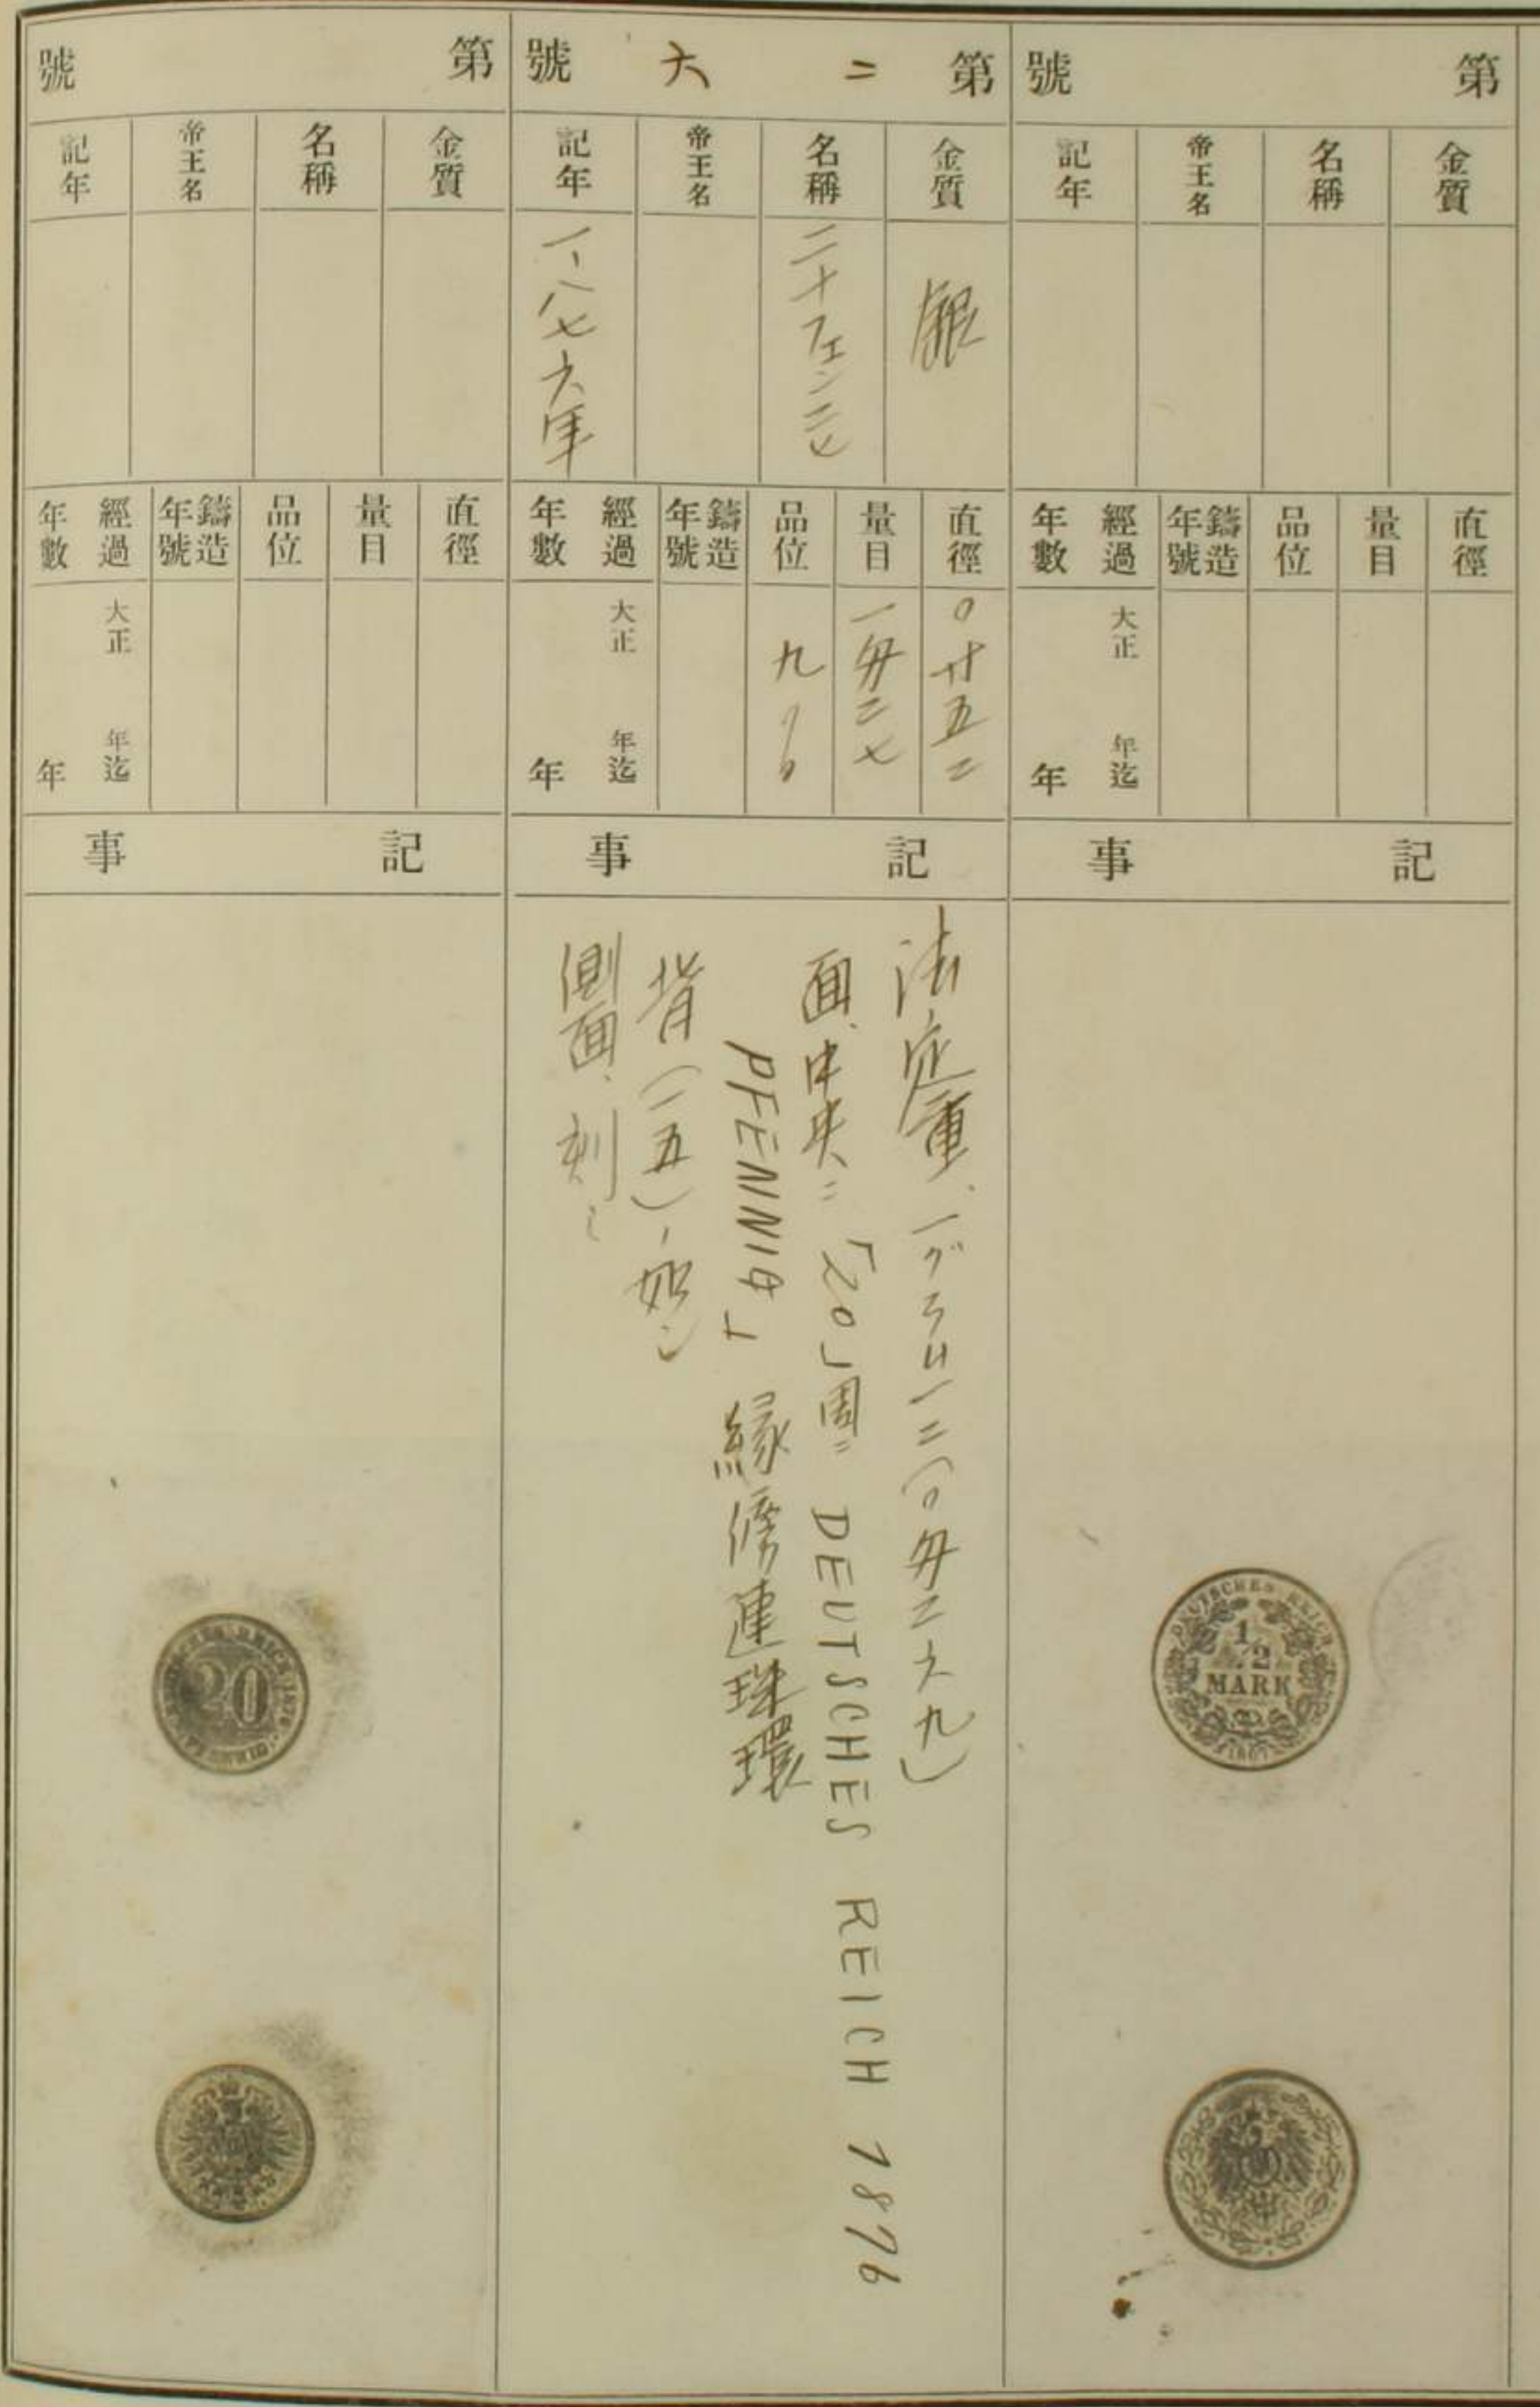 第 號
金質
名稱
帝王名
記年
直徑
量目
品位
鑄造年號
經過年數
大正 年迄
年
記事
DEUTSCHES REICH
1/2
MARK
第二六號
金質
銀
名稱
二十フェンニヒ
帝王名
記年
一八七六年
直徑
〇寸五二
量目
一匁二七
品位
九〇〇
鑄造年號
經過年數
大正 年迄
年
記事
法定重、一グラム一一一(〇匁二六九)
面、中央ニ「20」周ニ DEUTSCHES REICH 1876
PFENNIG」 緣傍連珠環
背(一五)ノ如シ
側面、刻ミ
第 號
金質
名稱
帝王名
記年
直徑
量目
品位
鑄造年號
經過年數
大正 年迄
年
記事
20